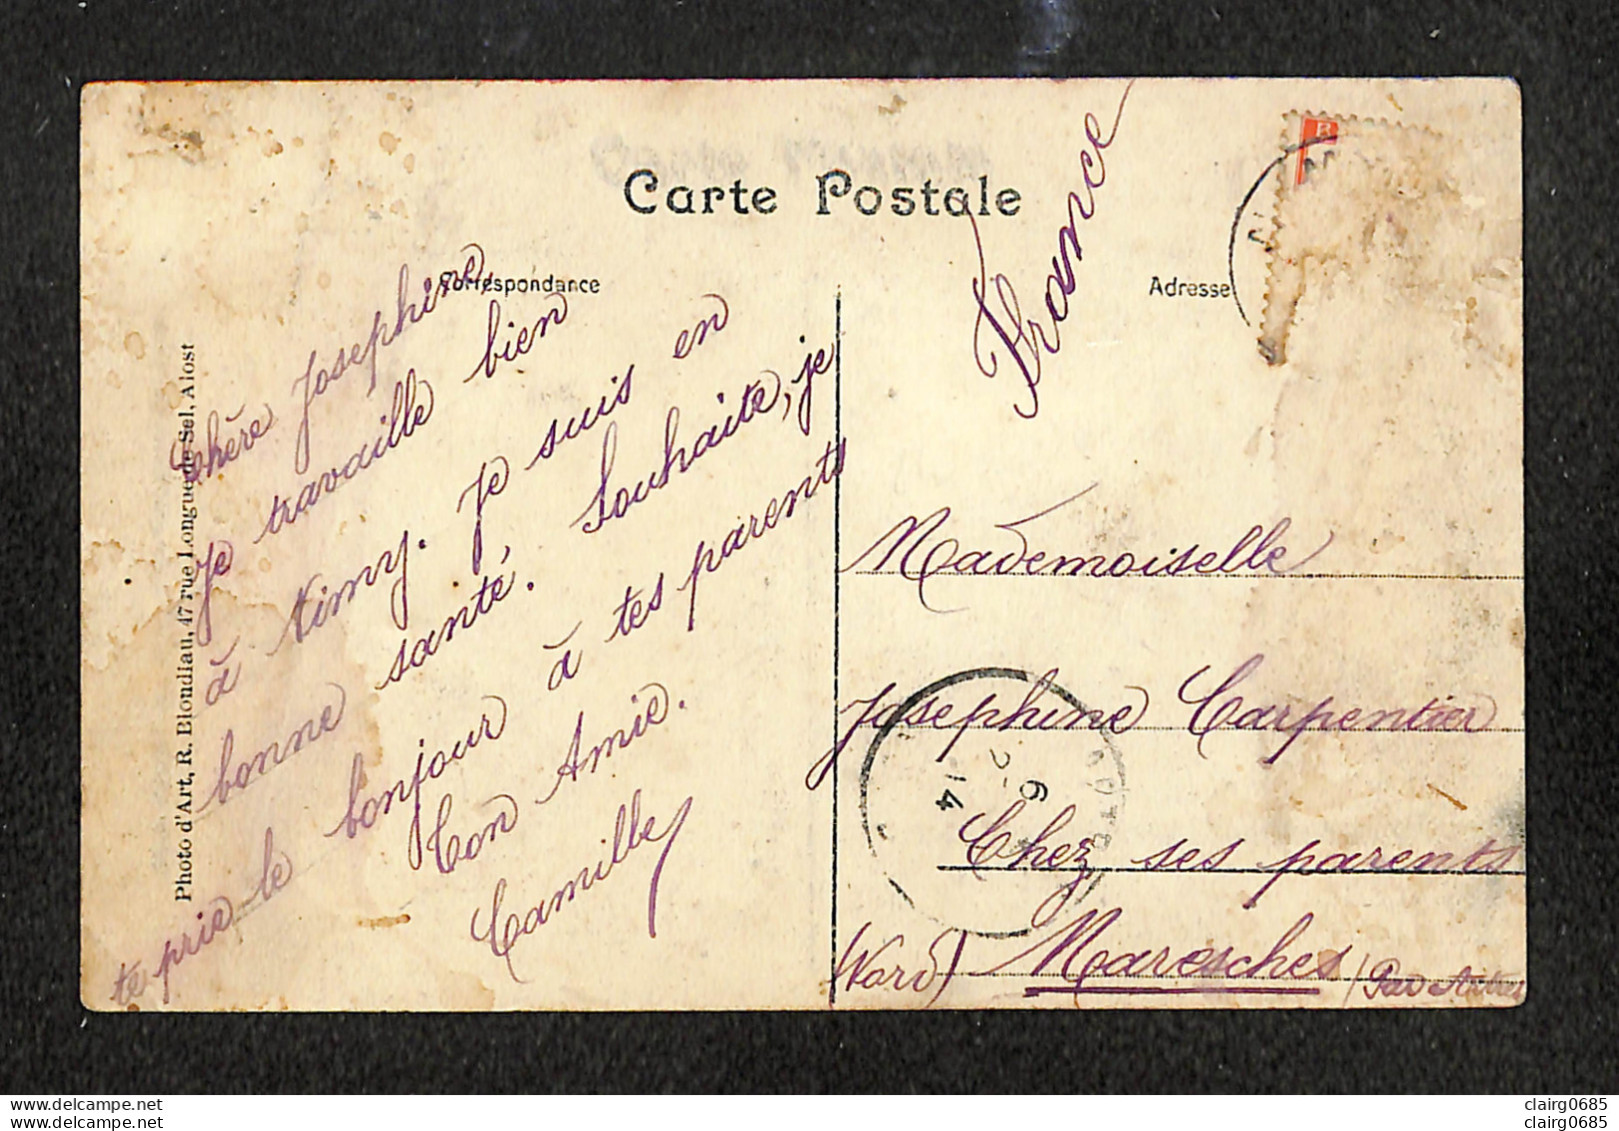 Carte Postale
Correspondance
Adresse
France
Chère Josephine,
Je travaille bien
à Nimy. Je suis en
bonne santé. Souhaite, je
te prie le bonjour à tes parents
Ton Amie.
Camille
Mademoiselle
Josephine Carpentier
Chez ses parents
(Nord) Maresches (Par
6
2-
14
Photo d'Art, R. Blondiau, 47 rue Longue de Sel, Alost
clairg0685 clairg0685
clairg0685 clairg0685